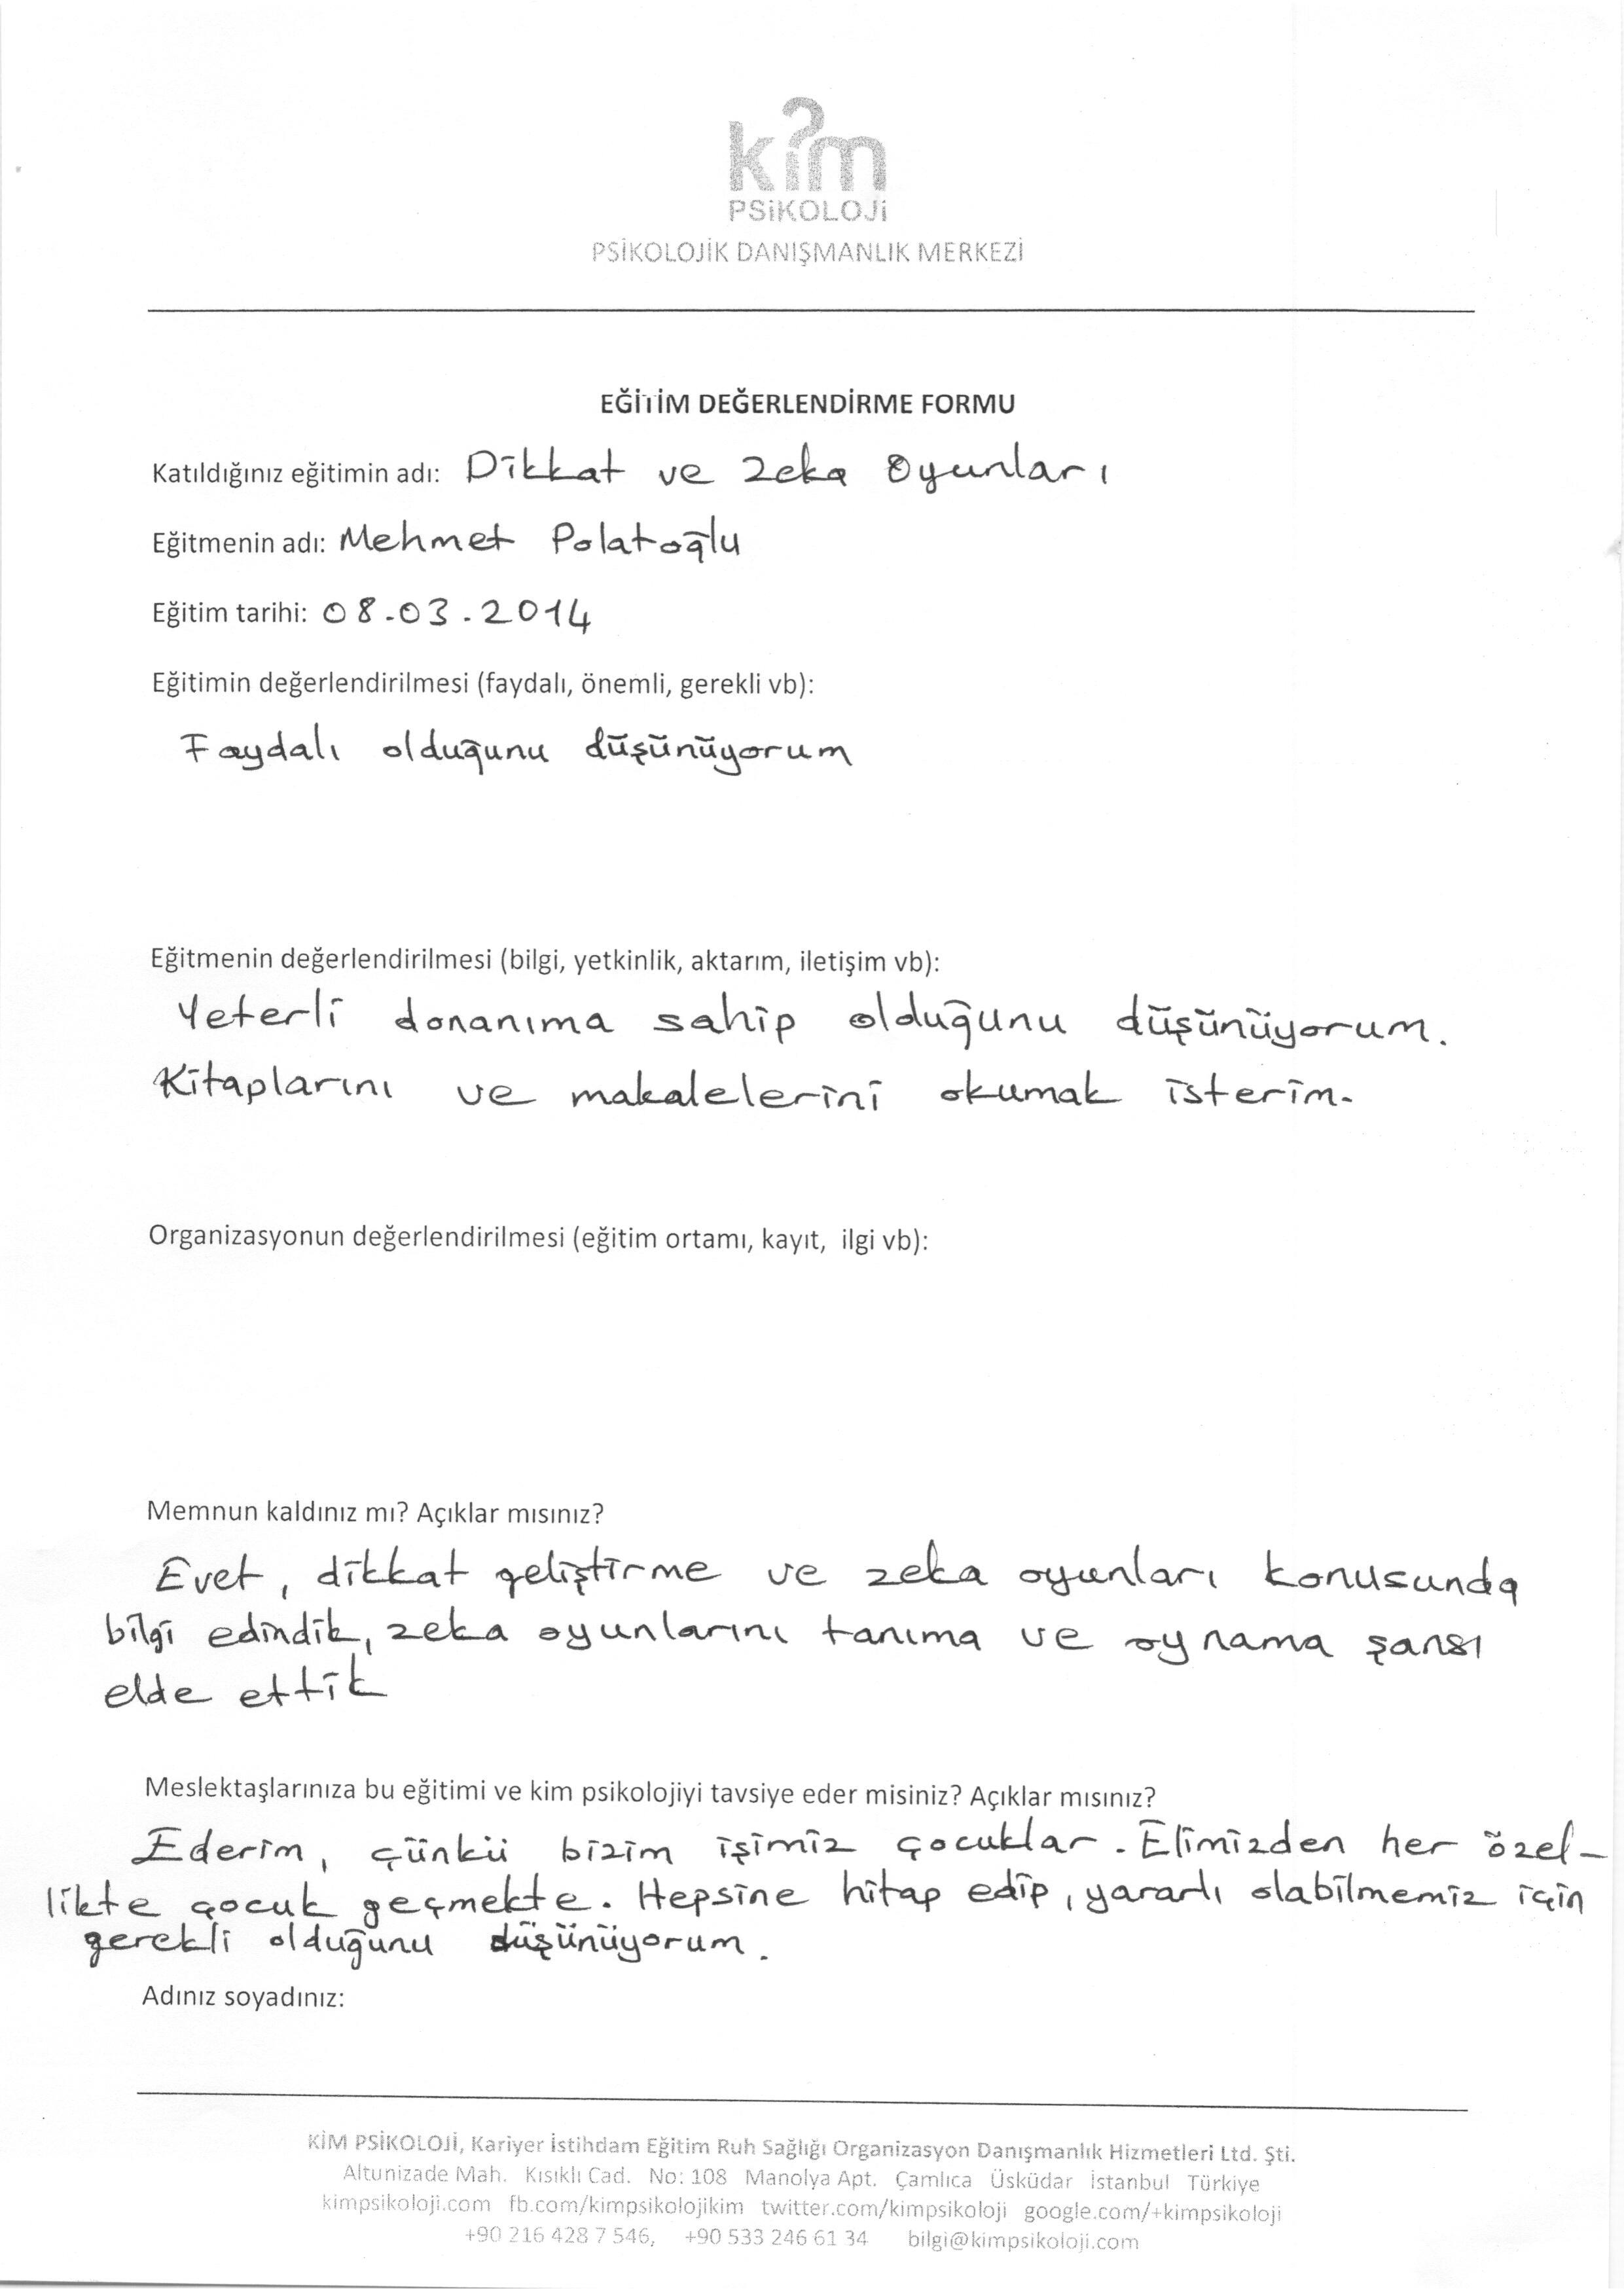 kim
PSİKOLOJİ
PSİKOLOJİK DANIŞMANLIK MERKEZİ
EĞİTİM DEĞERLENDİRME FORMU
Katıldığınız eğitimin adı: Dikkat ve Zeka Oyunları
Eğitmenin adı: Mehmet Polatoğlu
Eğitim tarihi: 08.03.2014
Eğitimin değerlendirilmesi (faydalı, önemli, gerekli vb):
Faydalı olduğunu düşünüyorum
Eğitmenin değerlendirilmesi (bilgi, yetkinlik, aktarım, iletişim vb):
Yeterli donanıma sahip olduğunu düşünüyorum.
Kitaplarını ve makalelerini okumak isterim.
Organizasyonun değerlendirilmesi (eğitim ortamı, kayıt, ilgi vb):
Memnun kaldınız mı? Açıklar mısınız?
Evet, dikkat geliştirme ve zeka oyunları konusunda
bilgi edindik, zeka oyunlarını tanıma ve oynama şansı
elde ettik
Meslektaşlarınıza bu eğitimi ve kim psikolojiyi tavsiye eder misiniz? Açıklar mısınız?
Ederim, çünkü bizim işimiz çocuklar. Elimizden her özel-
likte çocuk geçmekte. Hepsine hitap edip, yararlı olabilmemiz için
gerekli olduğunu düşünüyorum.
Adınız soyadınız:
KİM PSİKOLOJİ, Kariyer İstihdam Eğitim Ruh Sağlığı Organizasyon Danışmanlık Hizmetleri Ltd. Şti.
Altunizade Mah. Kısıklı Cad. No: 108 Manolya Apt. Çamlıca Üsküdar İstanbul Türkiye
kimpsikoloji.com fb.com/kimpsikolojikim twitter.com/kimpsikoloji google.com/+kimpsikoloji
+90 216 428 7 546, +90 533 246 61 34 bilgi@kimpsikoloji.com